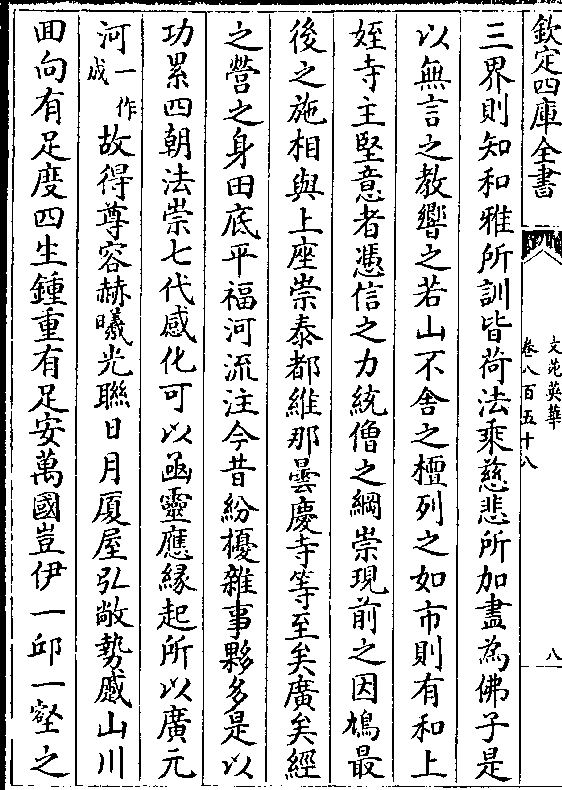 欽定四庫全書
文苑英華
卷八百五十八
八
三界則知和雅所訓皆荷法乘慈悲所加盡為佛子是
以無言之教響之若山不舍之檀列之如市則有和上
姪寺主堅意者憑信之力統僧之綱崇現前之因鳩最
後之施相與上座崇泰都維那曇慶寺等至矣廣矣經
之營之身田底平福河流注今昔紛擾雜事夥多是以
功累四朝法崇七代感化可以函靈應緣起所以廣元
河一作成故得尊容赫曦光聯日月厦屋弘敞勢蹙山川
回向有足度四生鍾重有足安萬國豈伊一邱一壑之